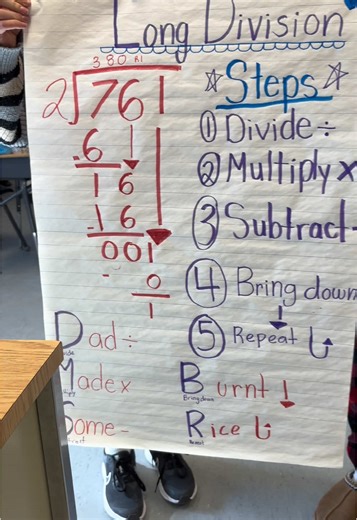 Long Division
Steps
380 R1
2 761
① Divide ÷
- 6
1 6
② Multiply x
- 1 6
③ Subtract -
001
- 0
1
④ Bring down
⑤ Repeat
Dad ÷
Made x
Burnt
Bring down
Some -
Rice